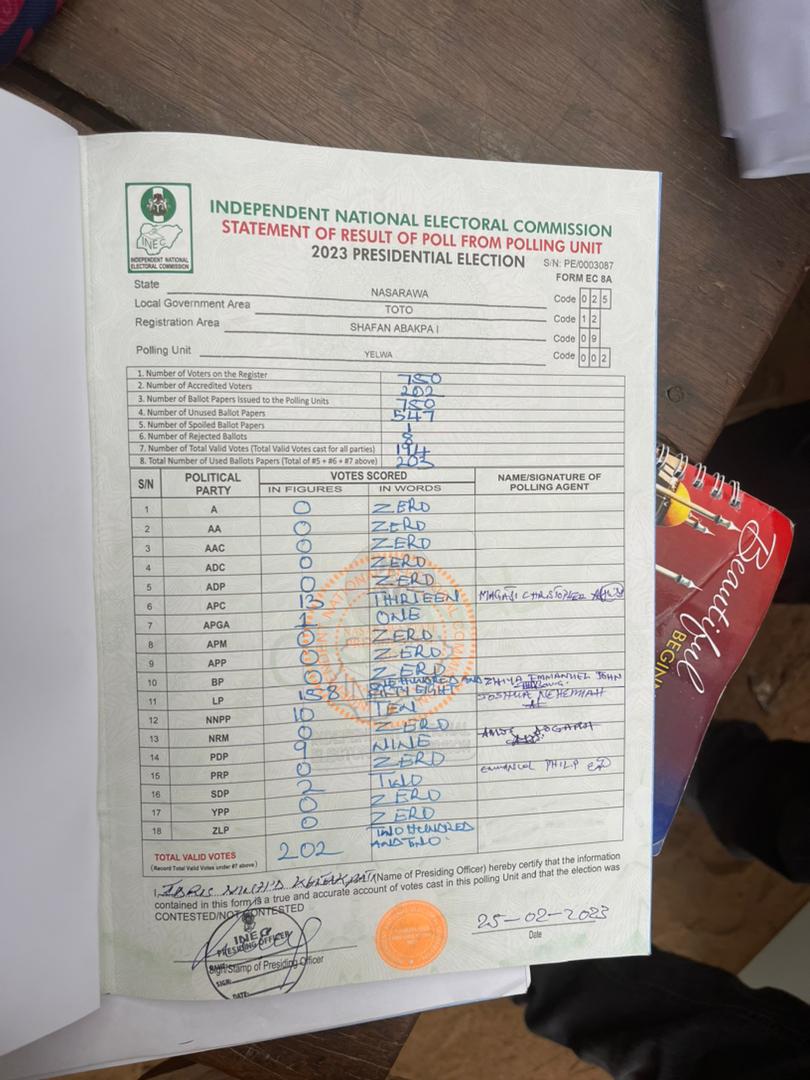 INEC
INDEPENDENT NATIONAL
ELECTORAL COMMISSION
INDEPENDENT NATIONAL ELECTORAL COMMISSION
STATEMENT OF RESULT OF POLL FROM POLLING UNIT
2023 PRESIDENTIAL ELECTION
S/N: PE/0003087
FORM EC 8A
State NASARAWA Code 0 2 5
Local Government Area TOTO Code 1 2
Registration Area SHAFAN ABAKPA I Code 0 9
Polling Unit YELWA Code 0 0 2
1. Number of Voters on the Register 750
2. Number of Accredited Voters 202
3. Number of Ballot Papers Issued to the Polling Units 750
4. Number of Unused Ballot Papers 547
5. Number of Spoiled Ballot Papers 1
6. Number of Rejected Ballots 8
7. Number of Total Valid Votes (Total Valid Votes cast for all parties) 194
8. Total Number of Used Ballots Papers (Total of #5 + #6 + #7 above) 203
S/N POLITICAL PARTY VOTES SCORED NAME/SIGNATURE OF POLLING AGENT
IN FIGURES IN WORDS
1 A 0 ZERO
2 AA 0 ZERO
3 AAC 0 ZERO
4 ADC 0 ZERO
5 ADP 0 ZERO
6 APC 13 THIRTEEN MAGAJI CHRISTOPHER
7 APGA 1 ONE
8 APM 0 ZERO
9 APP 0 ZERO
10 BP 0 ZERO
11 LP 158 ONE HUNDRED AND FIFTY EIGHT ZHIYA EMMANUEL JOHN
12 NNPP 10 TEN JOSHUA NEHEMIAH
13 NRM 0 ZERO
14 PDP 9 NINE
15 PRP 0 ZERO
16 SDP 2 TWO EMMANUEL PHILIP
17 YPP 0 ZERO
18 ZLP 0 ZERO
TOTAL VALID VOTES 202 TWO HUNDRED AND TWO
(Record Total Valid Votes under #7 above)
I, (Name of Presiding Officer) hereby certify that the information
contained in this form is a true and accurate account of votes cast in this polling Unit and that the election was
CONTESTED/NOT CONTESTED
INEC
PRESIDING OFFICER
SIGN:
DATE:
Sign/Stamp of Presiding Officer
25-02-2023
Date
Beautiful
BEGIN